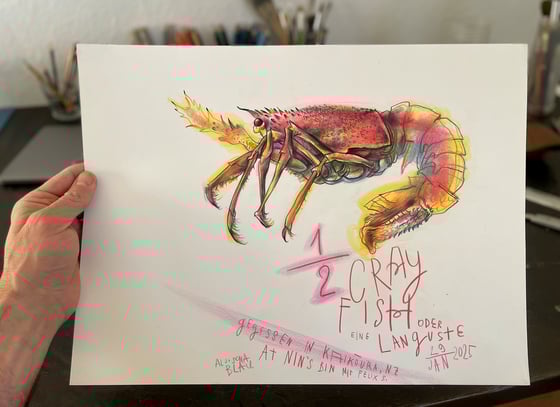 1/2
CRAY
FISH ODER
EINE LANGUSTE
29 JAN 2025
GEGESSEN IN KAIKOURA, NZ
AT NIN'S BIN MIT FELIX S.